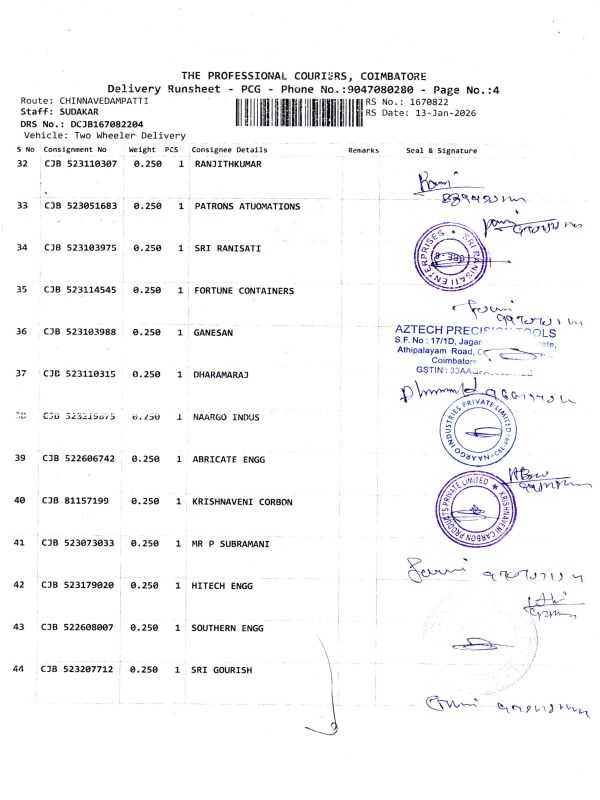 THE PROFESSIONAL COURIERS, COIMBATORE
Delivery Runsheet - PCG - Phone No.:9047080280 - Page No.:4
Route: CHINNAVEDAMPATTI
RS No.: 1670822
Staff: SUDAKAR
RS Date: 13-Jan-2026
DRS No.: DCJB167082204
Vehicle: Two Wheeler Delivery
S No Consignment No Weight PCS Consignee Details Remarks Seal & Signature
32 CJB 523110307 0.250 1 RANJITHKUMAR
33 CJB 523051683 0.250 1 PATRONS ATUOMATIONS
34 CJB 523103975 0.250 1 SRI RANISATI
SRI RANISATI ENTERPRISES
35 CJB 523114545 0.250 1 FORTUNE CONTAINERS
36 CJB 523103988 0.250 1 GANESAN
AZTECH PRECISION TOOLS
S.F. No : 17/1D, Jagan
Athipalayam Road,
Coimbatore
GSTIN : 33AA
37 CJB 523110315 0.250 1 DHARAMARAJ
38 CJB 523219875 0.250 1 NAARGO INDUS
NAARGO INDUSTRIES PRIVATE LIMITED
39 CJB 522606742 0.250 1 ABRICATE ENGG
40 CJB 81157199 0.250 1 KRISHNAVENI CORBON
KRISHNAVENI CARBON PRODUCTS PRIVATE LIMITED
41 CJB 523073033 0.250 1 MR P SUBRAMANI
42 CJB 523179020 0.250 1 HITECH ENGG
43 CJB 522608007 0.250 1 SOUTHERN ENGG
44 CJB 523207712 0.250 1 SRI GOURISH